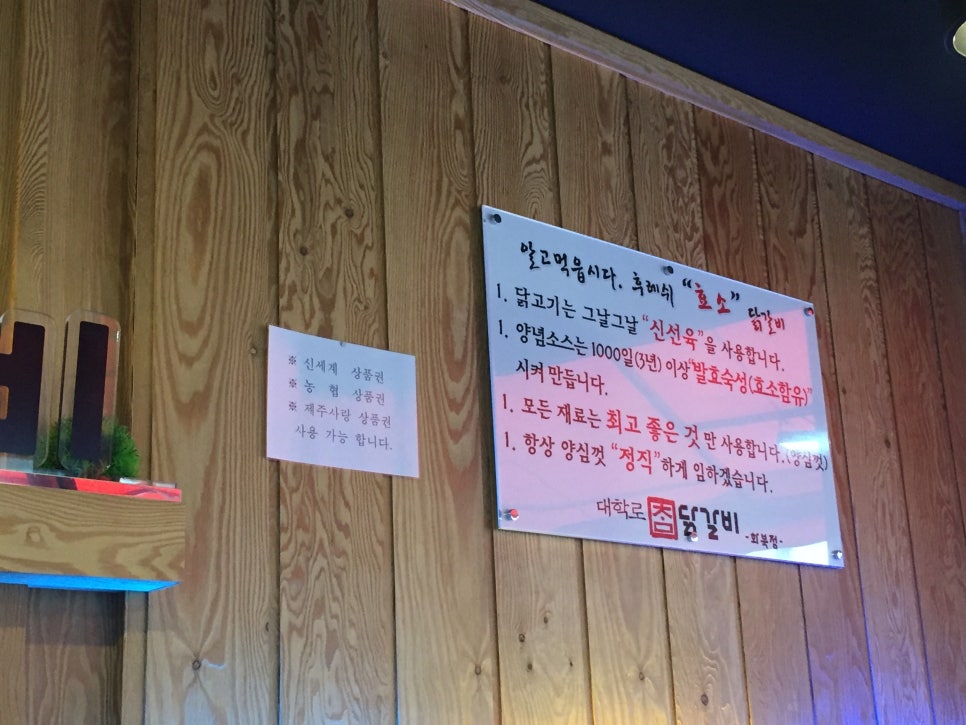 ※ 신세계 상품권
※ 농 협 상품권
※ 제주사랑 상품권
사용 가능 합니다.
알고먹읍시다. 후레쉬 "효소" 닭갈비
1. 닭고기는 그날그날 "신선육"을 사용합니다.
1. 양념소스는 1000일(3년) 이상 "발효숙성(효소함유)"
시켜 만듭니다.
1. 모든 재료는 최고 좋은 것 만 사용합니다.(양심껏)
1. 항상 양심껏 "정직"하게 임하겠습니다.
대학로 참 닭갈비 -화북점-